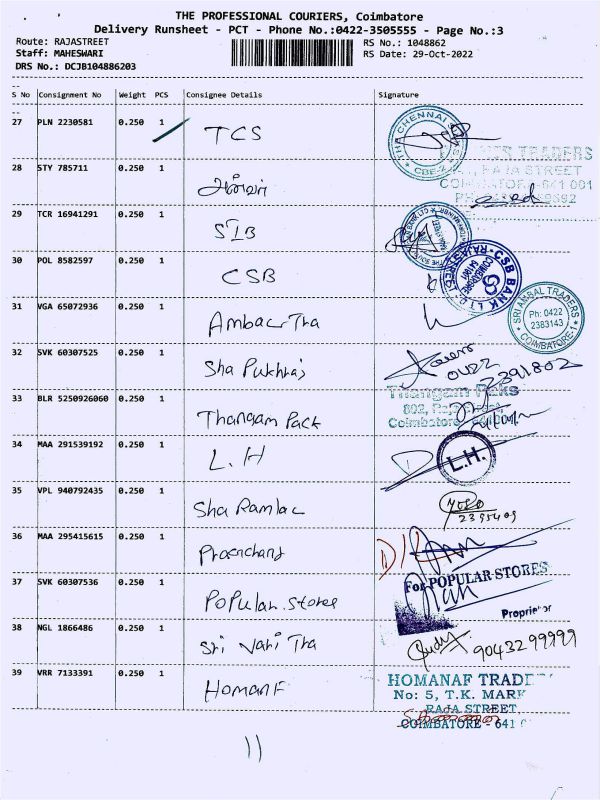 THE PROFESSIONAL COURIERS, Coimbatore
Delivery Runsheet - PCT - Phone No.:0422-3505555 - Page No.:3
Route: RAJASTREET
Staff: MAHESWARI
DRS No.: DCJB104886203
RS No.: 1048862
RS Date: 29-Oct-2022
S No Consignment No Weight PCS Consignee Details Signature
27 PLN 2230581 0.250 1 TCS
THE CHENNAI
CBE-
TRADERS
28 STY 785711 0.250 1
RAJA STREET
COIMBATORE-641 001
29 TCR 16941291 0.250 1 SIB
30 POL 8582597 0.250 1 CSB
CSB BANK LTD. RAJA STREET
COIMBATORE 641001
31 VGA 65072936 0.250 1 Ambac Tra
SRI AMBAL TRADERS
Ph: 0422
2383143
COIMBATORE-1
32 SVK 60307525 0.250 1 Sha Pukhraj
0422 2391802
33 BLR 5250926060 0.250 1 Thangam Pack
Thangam Paks
802, Raja Street,
Coimbatore - 641001
34 MAA 291539192 0.250 1 L.H
L.H.
35 VPL 940792435 0.250 1 Sha Ramlac
2395409
36 MAA 295415615 0.250 1 Praenchand
37 SVK 60307536 0.250 1 Popular. stores
For POPULAR STORES
Proprietor
38 NGL 1866486 0.250 1 Sri Nahi Tra
9043299999
39 VRR 7133391 0.250 1 Homanf
HOMANAF TRADE
No: 5, T.K. MARK
RAJA STREET
COIMBATORE - 641 0
11